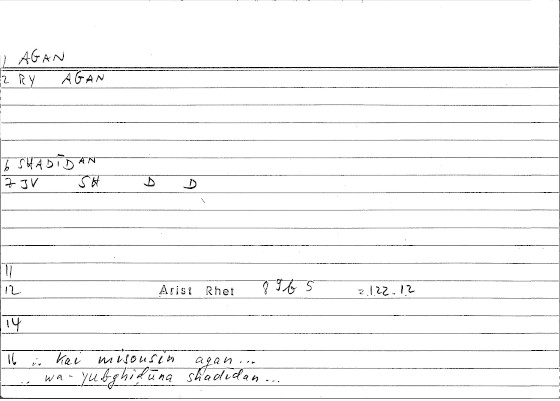 1 AGAN
2 RY AGAN
6 SHADĪDAN
7 JV SH D D
11
12 Arist Rhet 89b5 =122.12
14
16 ∴ kai misousin agan...
∴ wa-yubghiḍūna shadīdan...